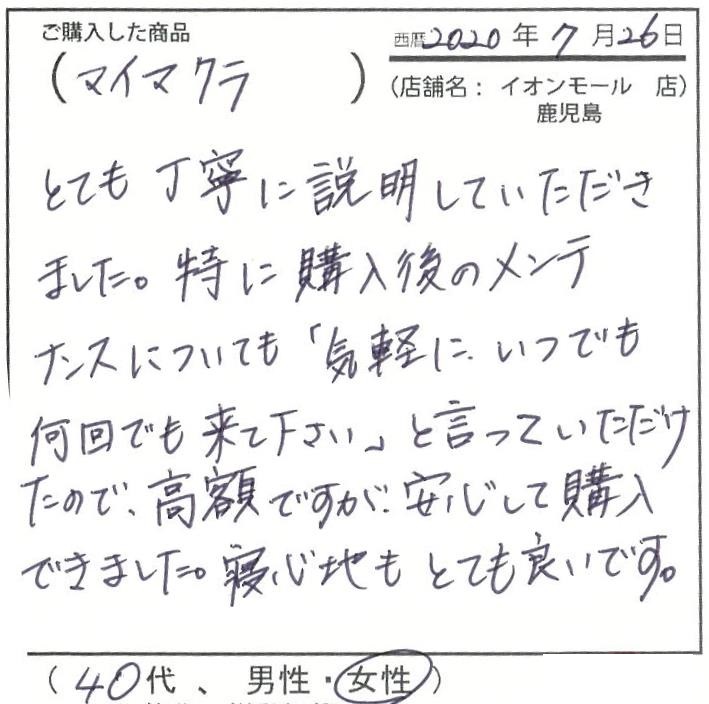 ご購入した商品
西暦2020年7月26日
(マイマクラ)
(店舗名: イオンモール 店)
鹿児島
とても丁寧に説明していただき
ました。特に購入後のメンテ
ナンスについても「気軽に、いつでも
何回でも来て下さい」と言っていただけ
たので、高額ですが、安心して購入
できました。寝心地もとても良いです。
(40代、男性・女性)